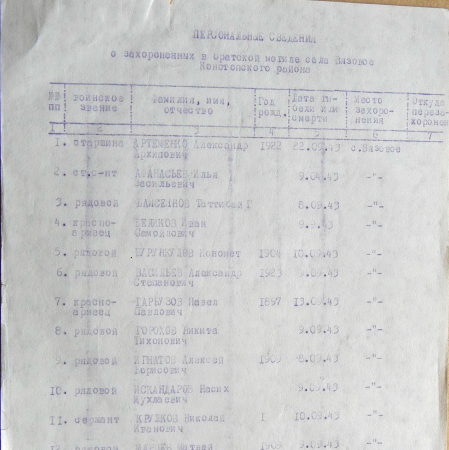 ПЕРСОНАЛЬНЫЕ СВЕДЕНИЯ
о захороненных в братской могиле села Вязовое
района
№№ пп воинское звание Фамилия, имя, отчество Год рожд. Дата гибели или смерти Место захоронения Откуда
1 2 3 4 5 6 7
1. старшина АРТЕМЕНКО Александр 1922 22.09.43 с.Вязовое
Архипович
2. ст.с-нт АФАНАСЬЕВ Илья 9.09.43 -"-
Васильевич
3. рядовой 8.09.43 -"-
4. красно- Иван 9.9.43 -"-
армеец Самойлович
5. рядовой 1904 10.09.43 -"-
6. рядовой ВАСИЛЬЕВ Александр 1923 9.09.43 -"-
Степанович
7. красно- ГАРБУЗОВ Павел 1897 13.09.43 -"-
армеец Павлович
8. рядовой ГОРОХОВ Никита 9.09.43 -"-
Тихонович
9. рядовой ИГНАТОВ Алексей 1909 8.09.43 -"-
Борисович
10. рядовой ИСКАНДАРОВ 9.09.43 -"-
11. сержант Николай 10.09.43 -"-
Иванович
12. рядовой Матвей 1909 9.09.43 -"-